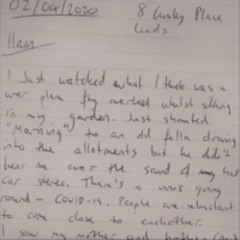 02/04/2020
8 Place
Leeds
I just watched what I think was a
plane fly overhead whilst sitting
in my garden. Just shouted
"Morning" to an old fella driving
into the allotments but he didn't
hear me over the sound of his
car stereo. There's a virus going
round - COVID-19. People are reluctant
to come close to eachother.
I saw my mother and